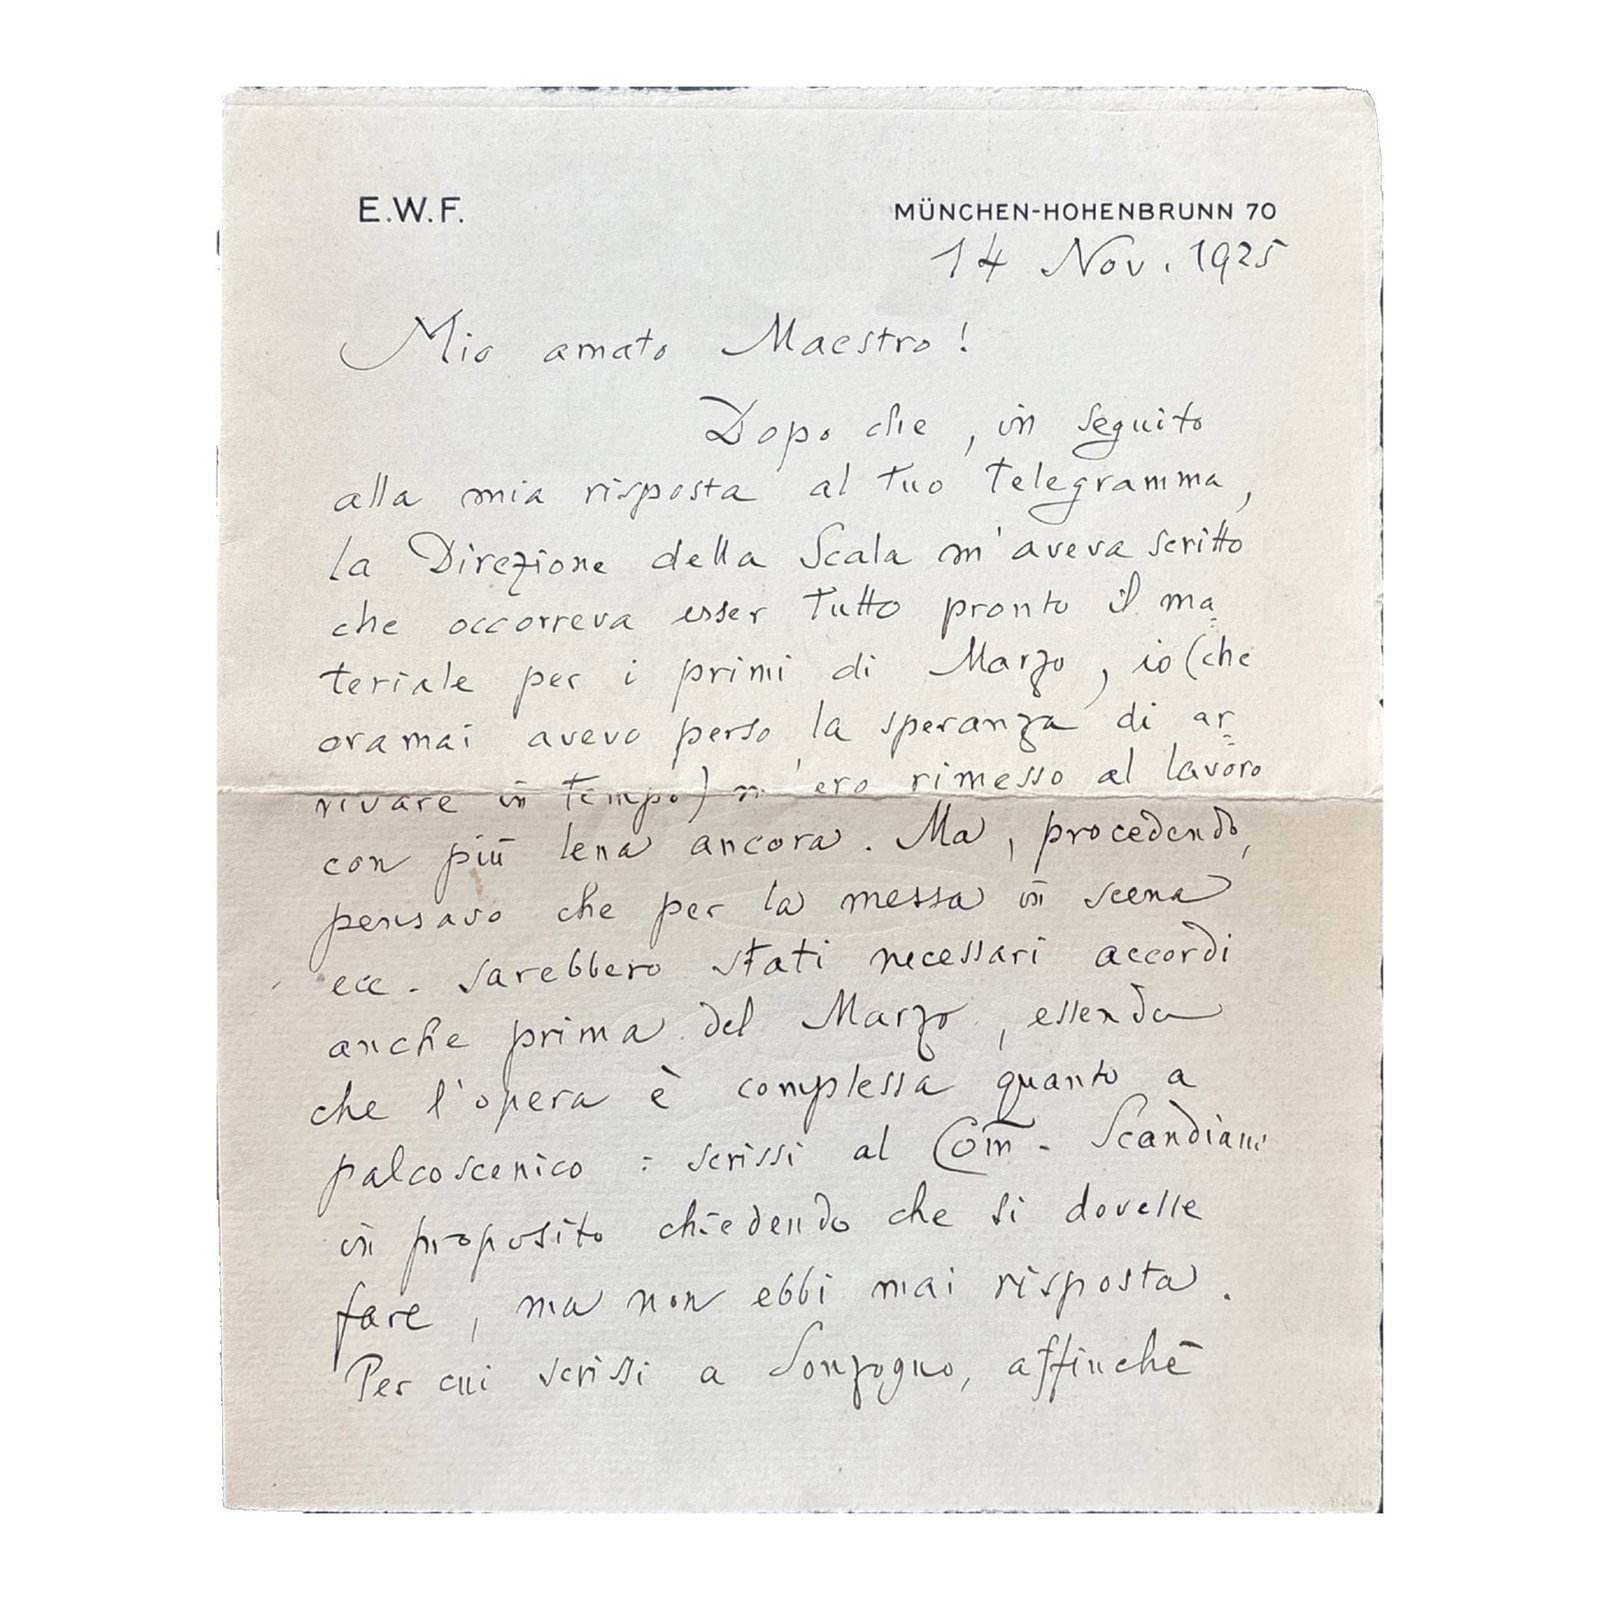 E.W.F.
MÜNCHEN-HOHENBRUNN 70
14 Nov. 1925
Mio amato Maestro!
Dopo che, in seguito
alla mia risposta al tuo telegramma,
la Direzione della Scala m'aveva scritto
che occorreva esser tutto pronto il ma=
teriale per i primi di Marzo, io (che
oramai avevo perso la speranza di ar=
rivare in tempo) m'ero rimesso al lavoro
con più lena ancora. Ma, procedendo,
pensavo che per la messa in scena
ecc. sarebbero stati necessari accordi
anche prima del Marzo, essendo
che l'opera è complessa quanto a
palcoscenico: scrissi al Com̃. Scandiani
in proposito chiedendo che si dovesse
fare, ma non ebbi mai risposta.
Per cui scrissi a Sonzogno, affinchè